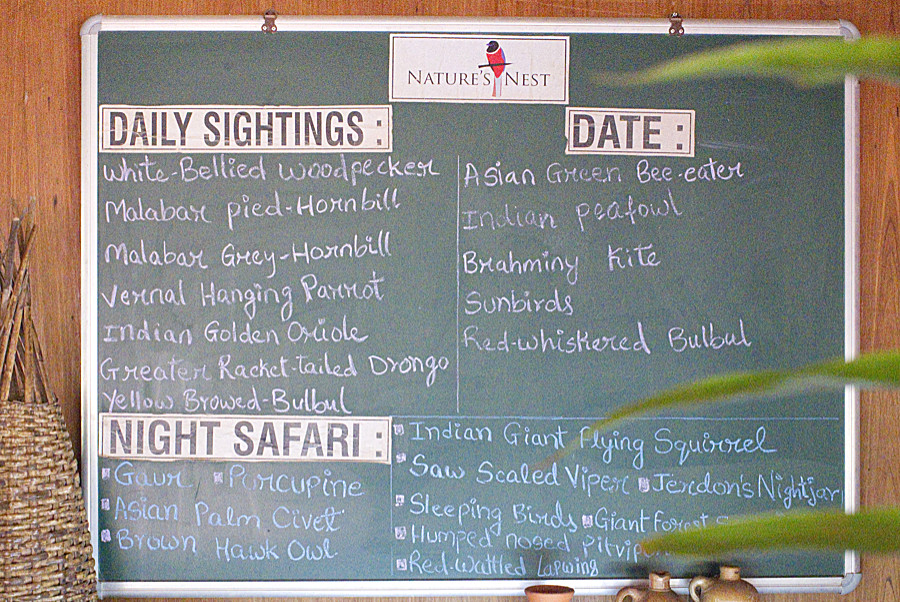 NATURE'S NEST
DAILY SIGHTINGS :
DATE :
White-Bellied Woodpecker
Malabar pied-Hornbill
Malabar Grey-Hornbill
Vernal Hanging Parrot
Indian Golden Oriole
Greater Racket-tailed Drongo
Yellow Browed-Bulbul
Asian Green Bee-eater
Indian peafowl
Brahminy Kite
Sunbirds
Red-whiskered Bulbul
NIGHT SAFARI :
Gaur Porcupine
Asian Palm Civet
Brown Hawk Owl
Indian Giant Flying Squirrel
Saw Scaled Viper Jerdon's Nightjar
Sleeping Birds Giant forest
Humped nosed Pitviper
Red-wattled Lapwing